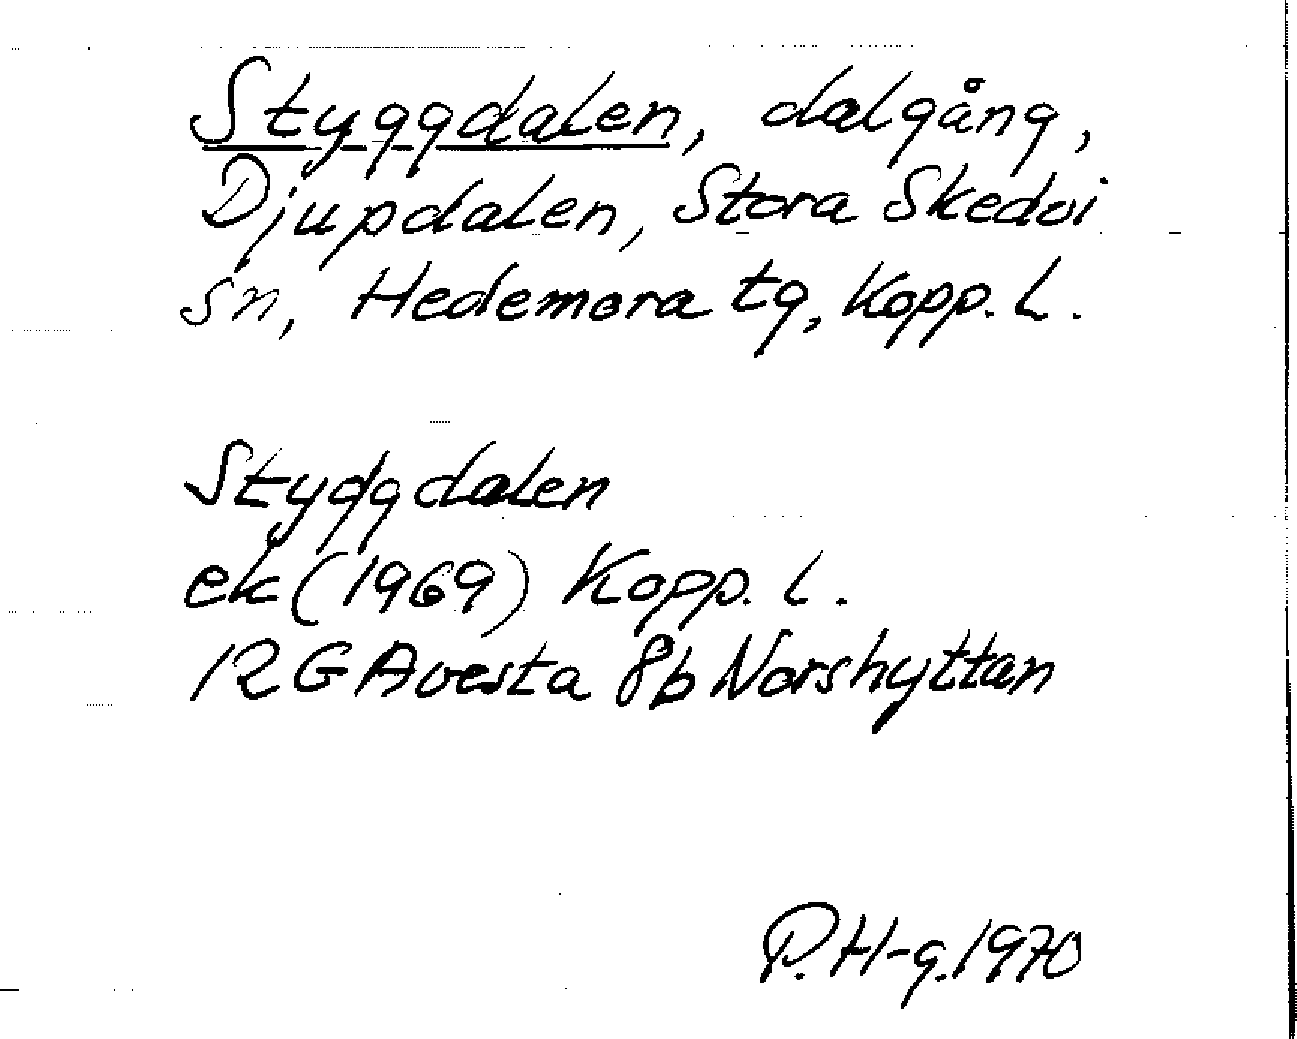 Styggdalen, dalgång,
Djupdalen, Stora Skedvi
sn, Hedemora tg, Kopp. L.
Styggdalen
ek (1969) Kopp. l.
12 G Avesta 8b Norshyttan
P. H-g. 1970